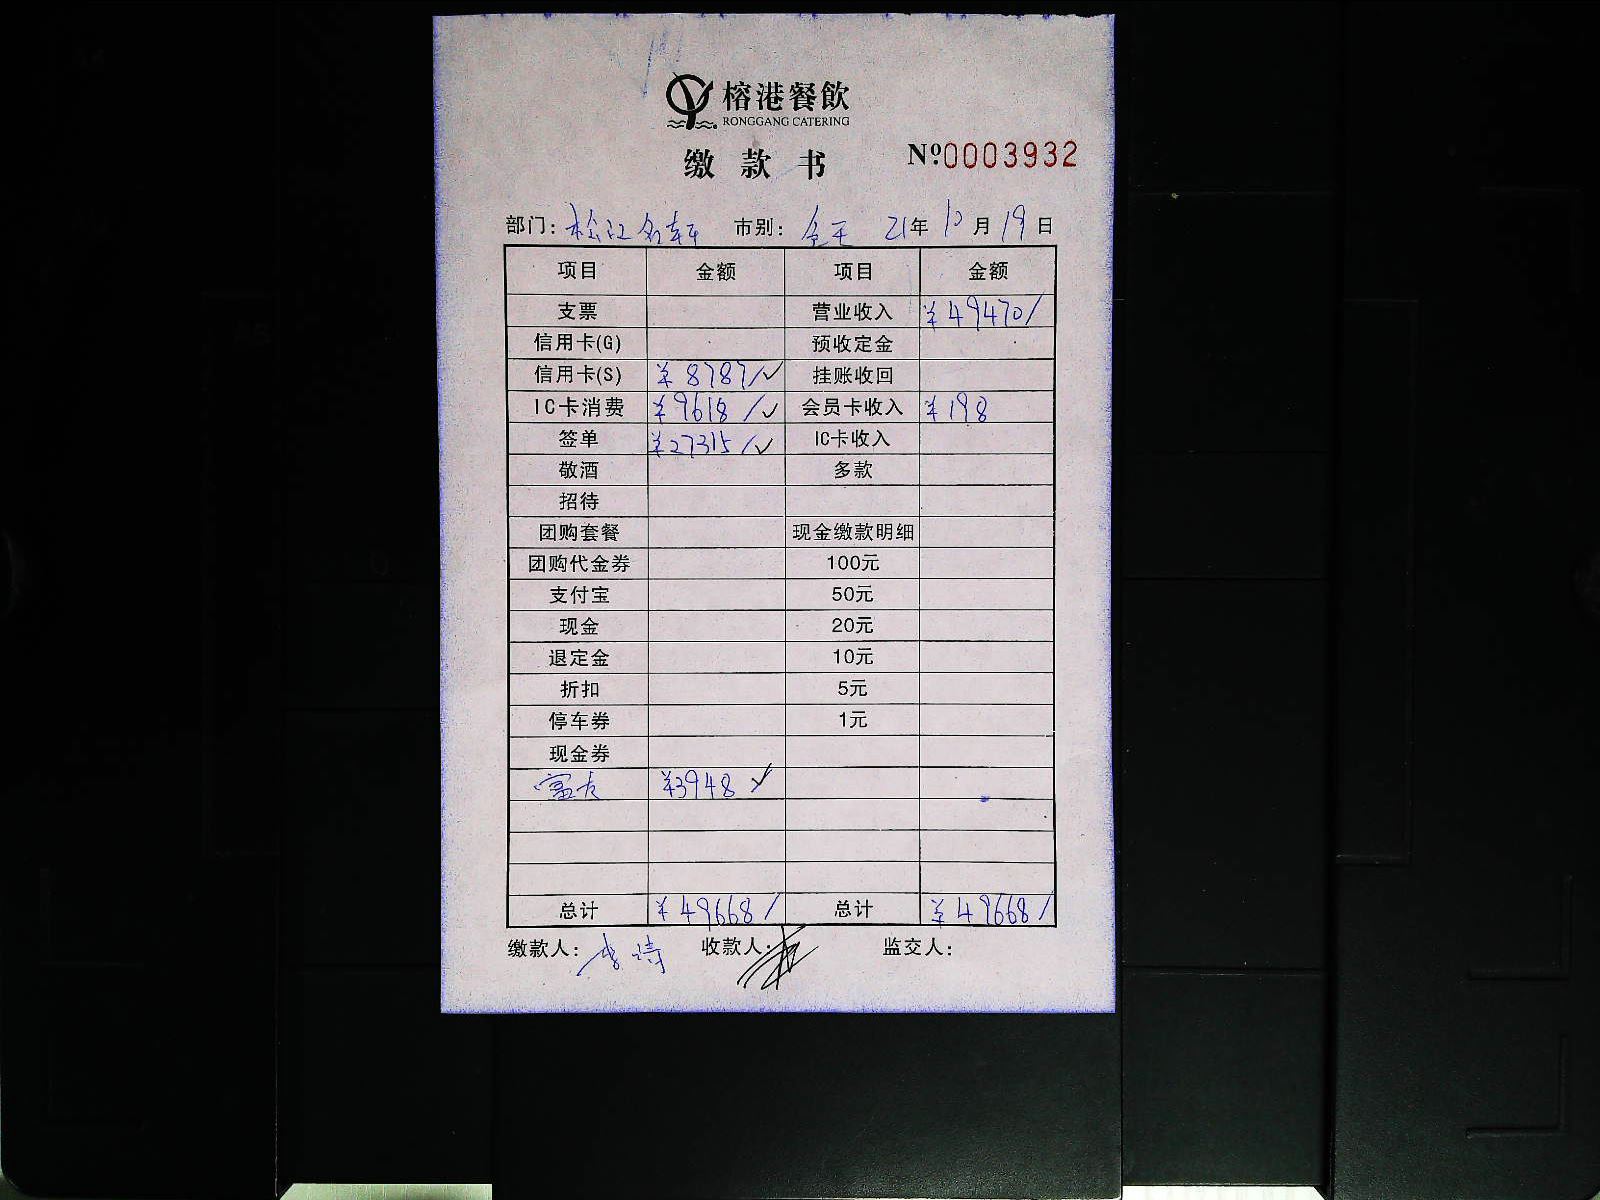 榕港餐飲
RONGGANG CATERING
缴款书 Nº0003932
部门: 松江名轩 市别: 全天 21年10月19日
项目 金额 项目 金额
支票 营业收入 ¥49470/
信用卡(G) 预收定金
信用卡(S) ¥8787/✓ 挂账收回
IC卡消费 ¥9618/✓ 会员卡收入 ¥198
签单 ¥27315/✓ IC卡收入
敬酒 多款
招待
团购套餐 现金缴款明细
团购代金券 100元
支付宝 50元
现金 20元
退定金 10元
折扣 5元
停车券 1元
现金券
富卡 ¥3948✓
总计 ¥49668/ 总计 ¥49668/
缴款人: 李诗 收款人: 监交人: